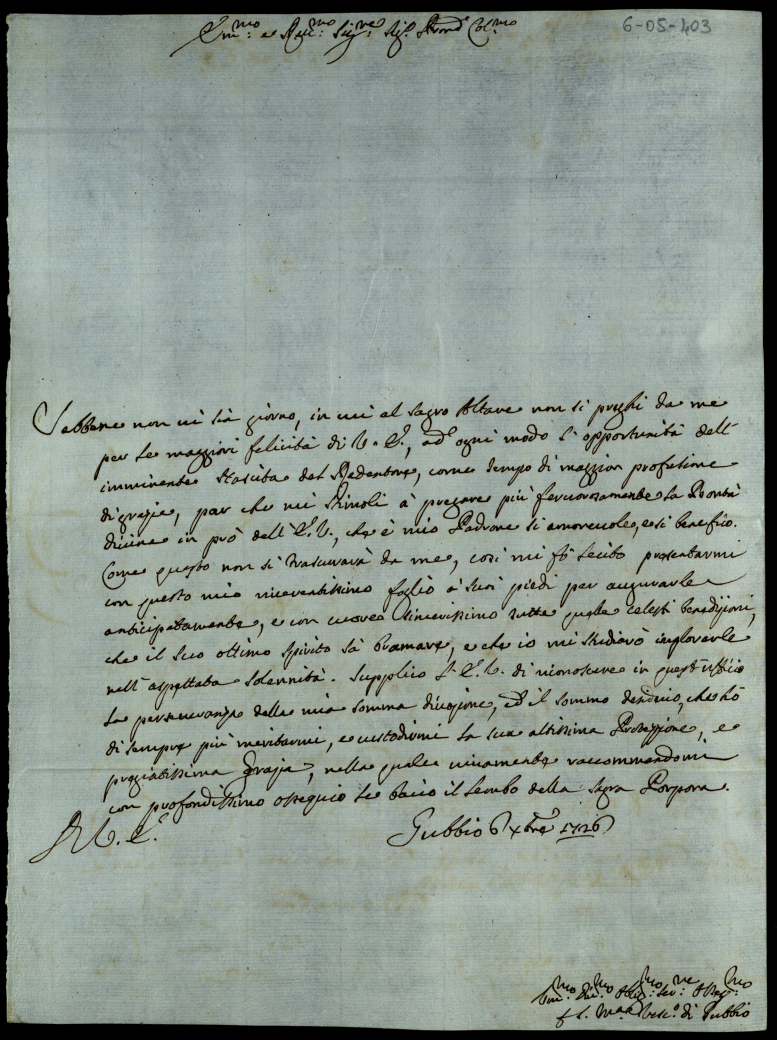 Em.mo e Rev.mo Sig.re Sig.r Pron.e Col.mo
6-05-403
Sebbene non vi sia giorno, in cui al Sagro Altare non si preghi da me
per le maggiori felicità di V. E., ad ogni modo l'opportunità dell'
imminente Nascita del Redentore, come tempo di maggior profusione
di grazie, par che mi stimoli à pregare più fervorosamente la Bontà
divina in prò dell'E. V., che è mio Padrone si amorevole, e si benefico.
Come questo non si trascurarà da me, così mi fò lecito presentarmi
con questo mio riverentissimo foglio a suoi piedi per augurarle
anticipatamente, e con cuore sincerissimo tutte quelle celesti benedizioni,
che il suo ottimo spirito sà bramare, e che io mi studierò implorarle
nell'aspettata solennità. Supplico l'E. V. di riconoscere in quest'ufficio
la perseveranza della mia somma divozione, ed il sommo desiderio, che hò
di sempre più meritarmi, e custodirmi la sua altissima Protezzione, e
pregiatissima Grazia, nella quale vivamente raccommandomi
con profondissimo ossequio le bacio il lembo della Sagra Porpora.
D. V. E.
Gubbio 6 Xbre 1726
Um.mo Div.mo Oblig.mo Ser.re Osseq.mo
f. S. M.a Vesc.o di Gubbio